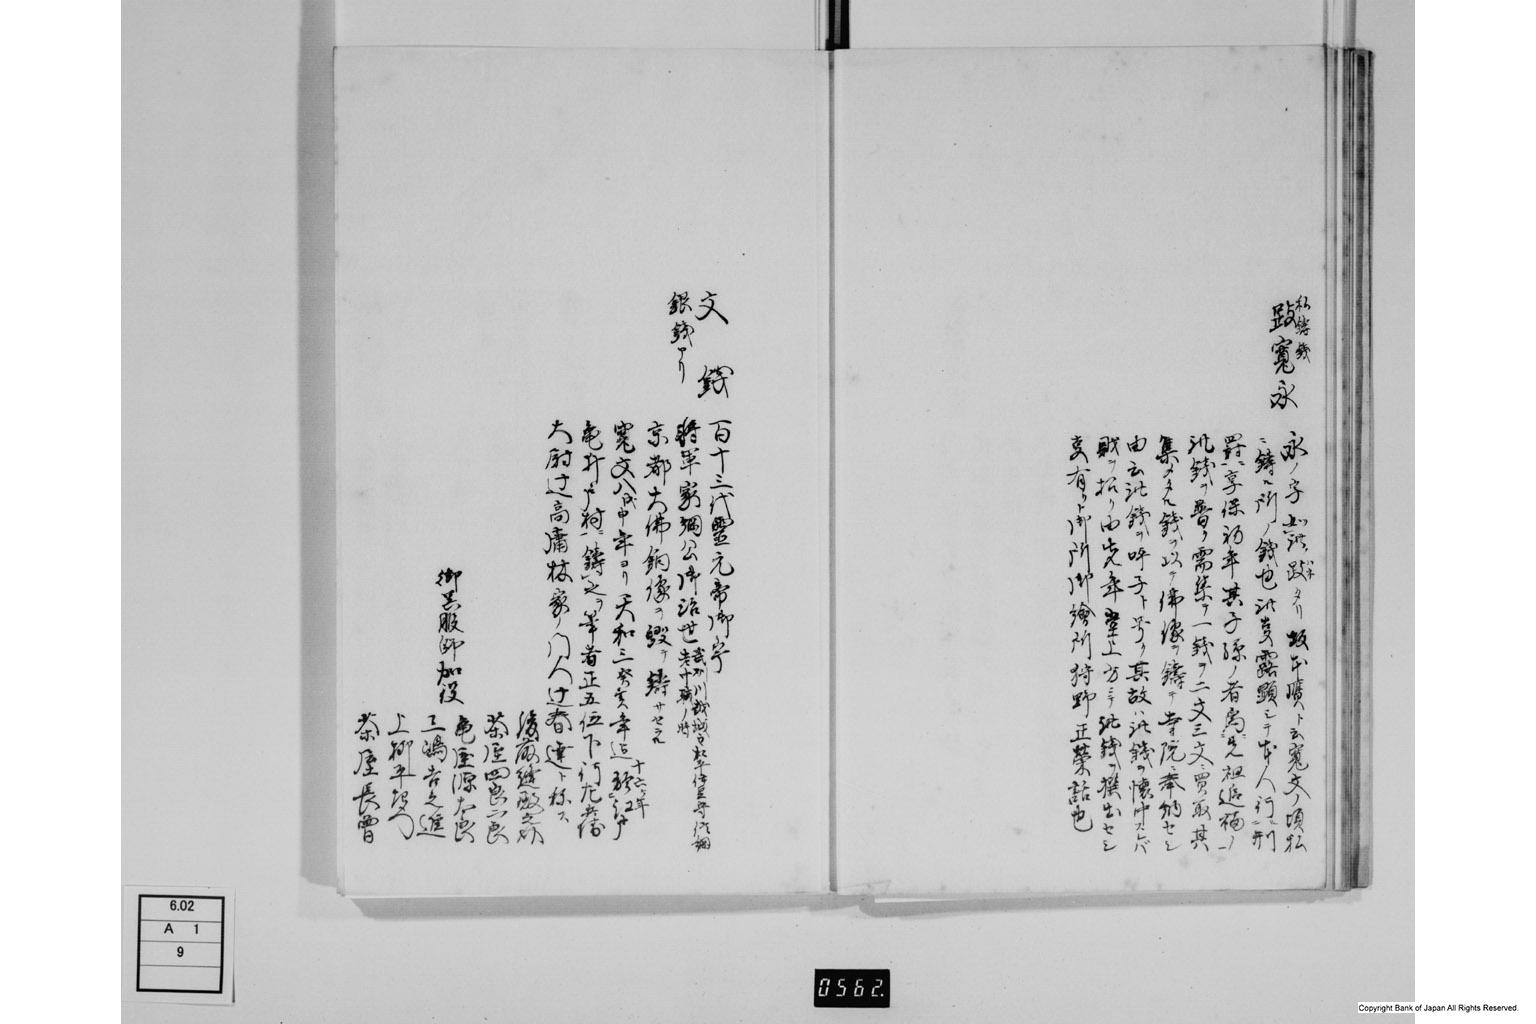 私鋳銭
跛寛永
永ノ字如此跛タリ坂本銭ト云寛文ノ頃私
ニ鋳ル所ノ銭也此事露顕シテ本人行刑
罸享保初年其子孫ノ者為先祖追福ノ
此銭ヲ普ク需集テ一銭ヲ二文三文買取其
集メタル銭ヲ以テ佛像ヲ鋳テ寺院ニ奉納セシ
由云此銭ヲ呼子ト号リ其故ハ此銭ヲ懐中スレバ
財ヲ招ク由先年堂上方ニテ此銭ヲ撰出セシ
事有リト御所御繪所狩野正榮話也
文 銭
銀銭アリ
百十三代靈元帝御宇
将軍家綱公御治世
川越城主松平伊豆守信綱
老中職ノ時
京都大佛銅像ヲ毀テ鋳サセラル
寛文八戊申年ヨリ天和三癸亥年迄
十六ヶ年
於江戸
亀井戸村鋳之ヲ筆者正五位下行左衛
大尉辻高庸故家ノ門人辻春達ト称ス
御呉服師加役
後藤縫殿之助
茶屋四郎二郎
亀屋源太郎
三嶋吉之進
上柳平
茶屋長曽
6.02
A 1
9
0562.
Copyright Bank of Japan All Rights Reserved.